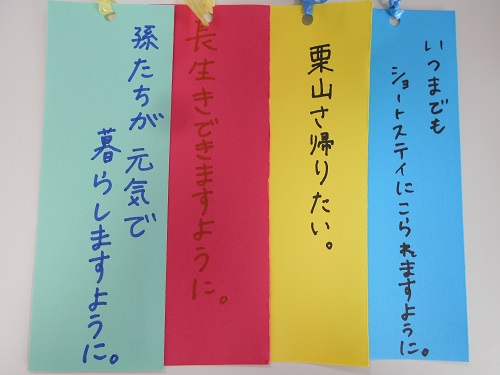 いつまでも
ショートステイにこられますように。
栗山さ帰りたい。
長生きできますように。
孫たちが元気で
暮らしますように。